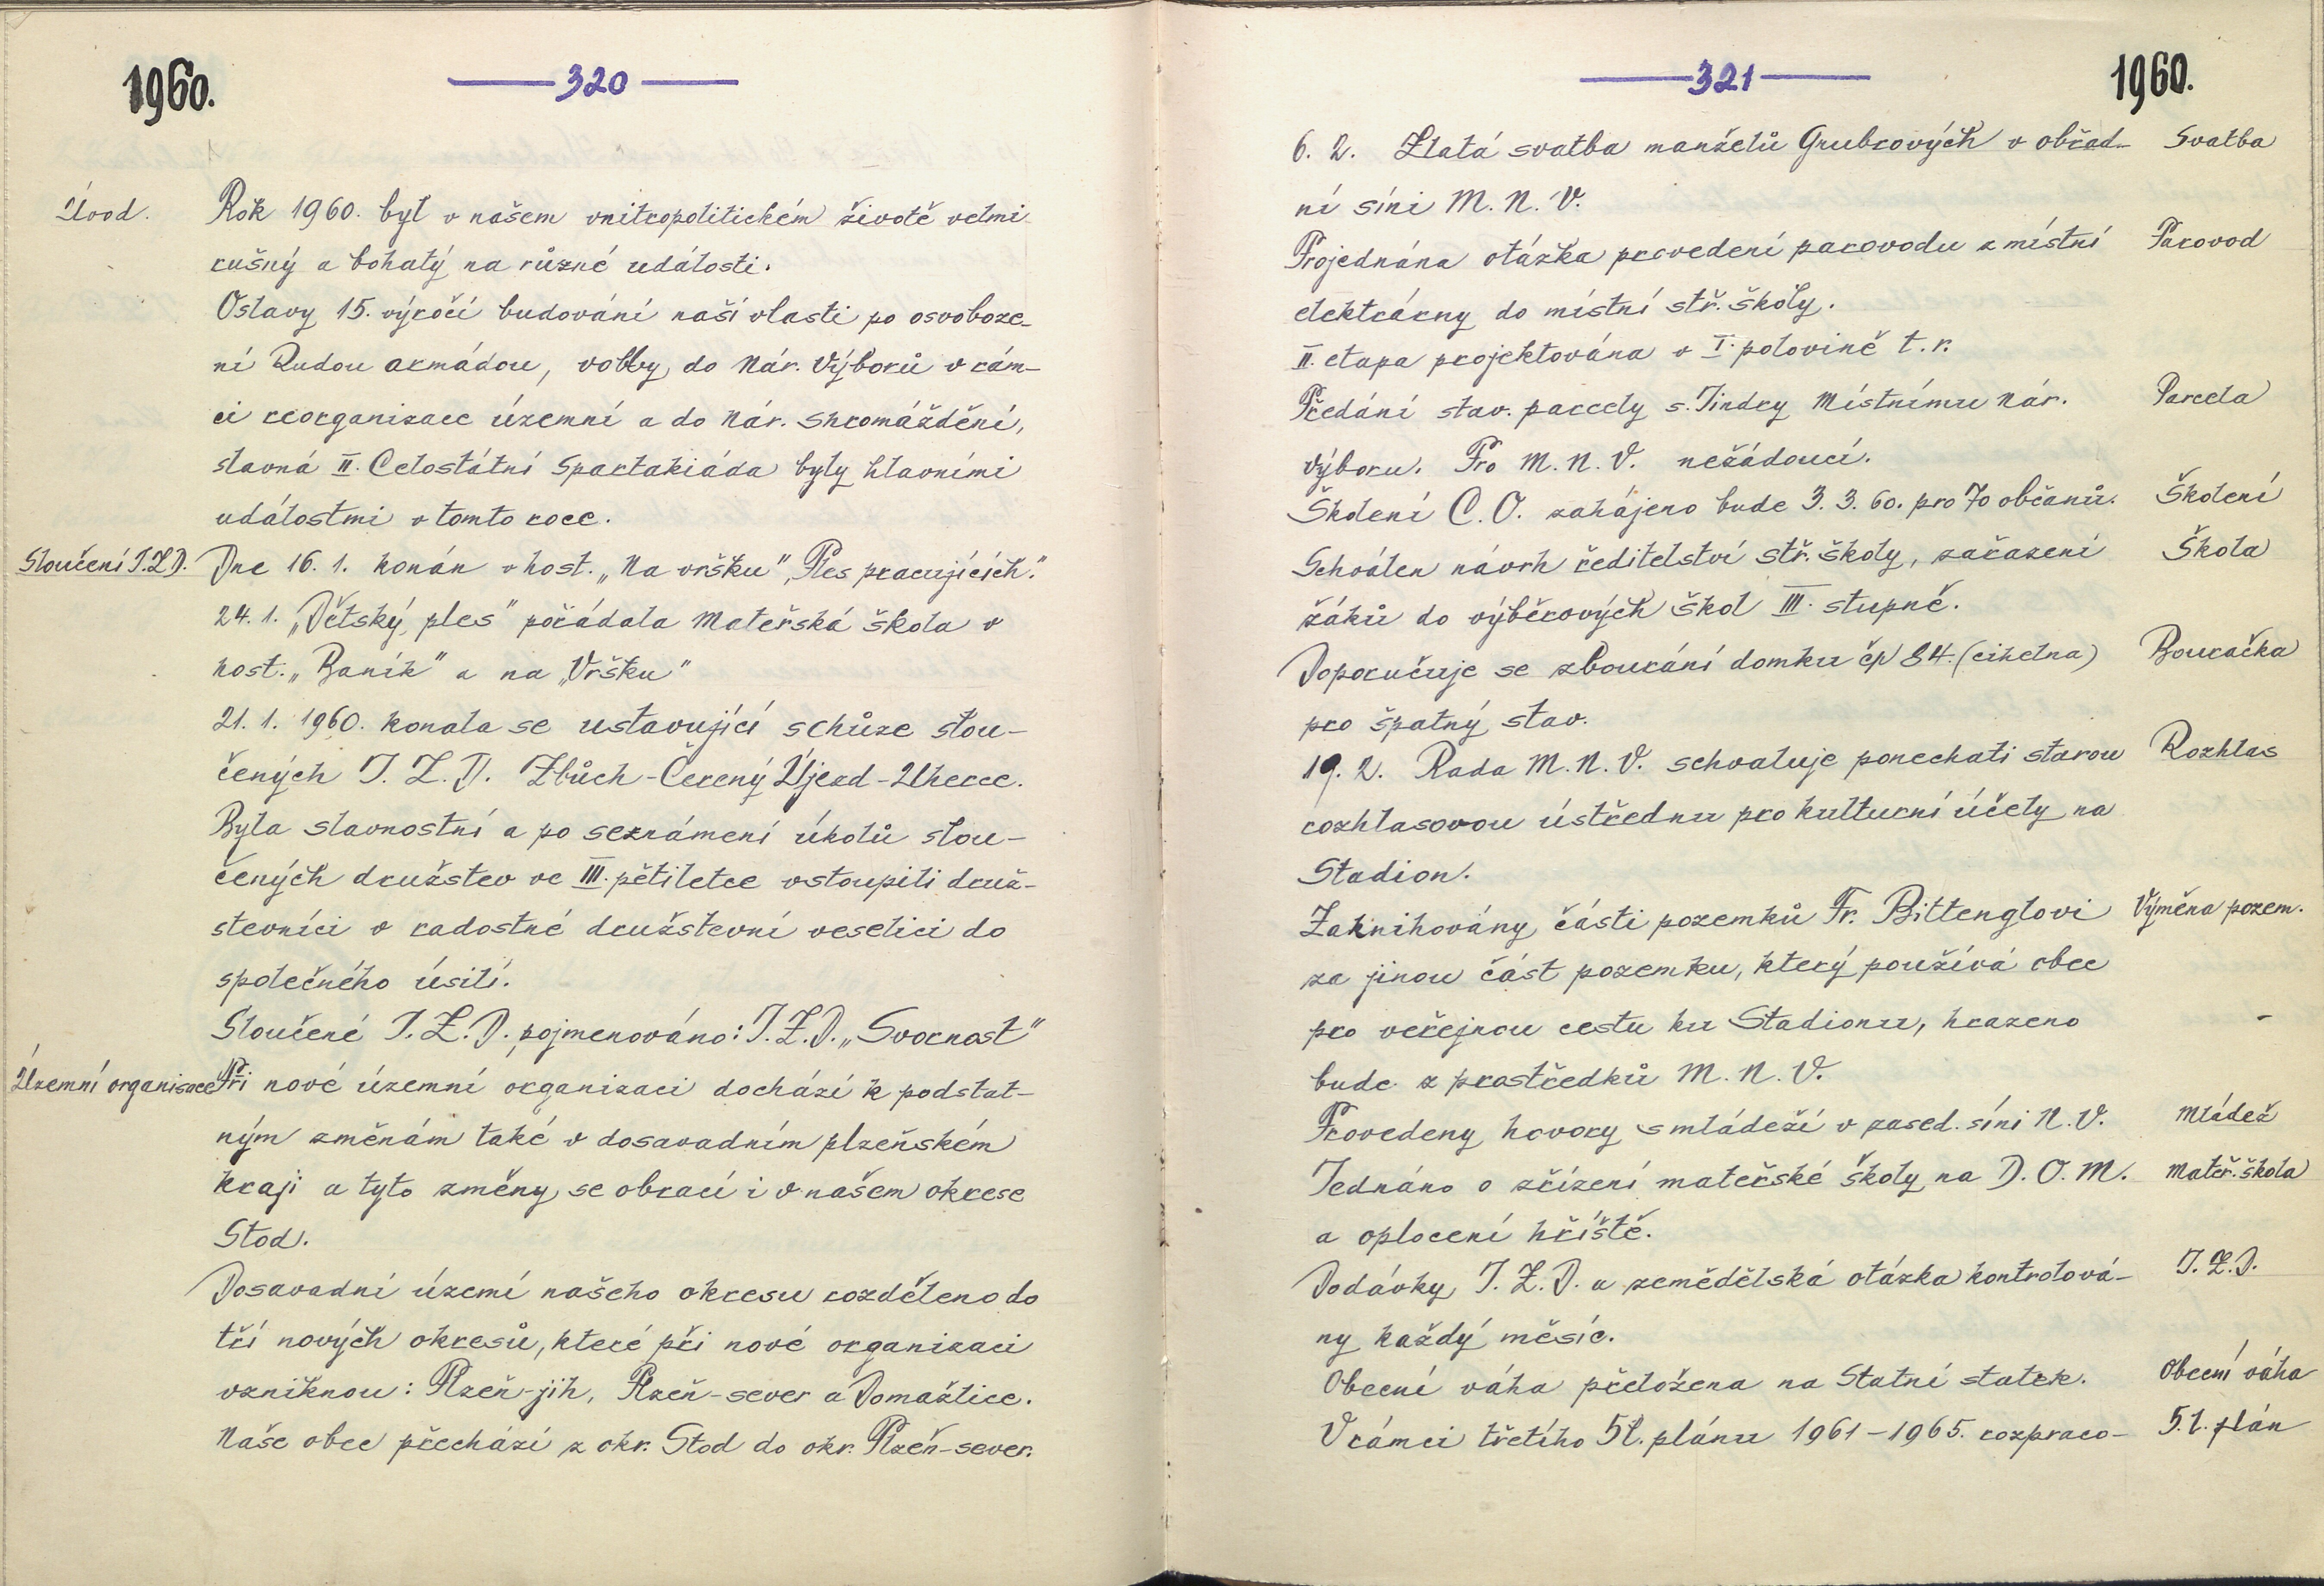 1960.
320
Úvod.
Rok 1960. byl v našem vnitropolitickém životě velmi
rušný a bohatý na různé události.
Oslavy 15. výročí budování naší vlasti po osvoboze-
ní Rudou armádou, volby do Nár. Výborů v rám-
ci reorganisace územní a do Nár. shromáždění,
slavná II. Celostátní Spartakiáda byly hlavními
událostmi v tomto roce.
Sloučení J.Z.D.
Dne 16. 1. konán v host. „Na vršku" „Ples pracujících."
24. 1. „Dětský ples" pořádala Mateřská škola v
host. „Baník" a na „Vršku"
21. 1. 1960. konala se ustavující schůze slou-
čených J. Z. D. Zbůch - Červený Újezd - Uherce.
Byla slavnostní a po seznámení úkolů slou-
čených družstev ve III. pětiletce vstoupili druž-
stevníci v radostné družstevní veselici do
společného úsilí.
Sloučené J. Z. D. pojmenováno: J. Z. D. „Svornost"
Územní organisace
Při nové územní organizaci dochází k podstat-
ným změnám také v dosavadním plzeňském
kraji a tyto změny se obrací i v našem okrese
Stod.
Dosavadní území našeho okresu rozděleno do
tří nových okresů, které při nové organizaci
vzniknou: Plzeň-jih, Plzeň-sever a Domažlice.
Naše obec přechází z okr. Stod do okr. Plzeň-sever.
321
1960.
6. 2. Zlatá svatba manželů Grubrových v obřad-
Svatba
ní síni M. N. V.
Projednána otázka provedení parovodu z místní
Parovod
elektrárny do místní stř. školy.
II. etapa projektována v I. polovině t. r.
Předání stav. parcely s. Jindry Místnímu Nár.
Parcela
Výboru. Pro M. N. V. nežádoucí.
Školení C. O. zahájeno bude 3. 3. 60. pro 70 občanů.
Školení
Schválen návrh ředitelství stř. školy, zařazení
Škola
žáků do výběrových škol III. stupně.
Doporučuje se zbourání domku čp 84. (cihelna)
Bouračka
pro špatný stav.
19. 2. Rada M. N. V. schvaluje ponechati starou
Rozhlas
rozhlasovou ústřednu pro kulturní účely na
Stadion.
Zaknihovány části pozemků Fr. Bittenglovi
Výměna pozem.
za jinou část pozemku, který používá obec
pro veřejnou cestu ku Stadionu, hrazeno
bude z prostředků M. N. V.
Provedeny hovory s mládeží v zased. síni N. V.
Mládež
Jednáno o zřízení mateřské školy na D. O. M.
Mateř. škola
a oplocení hřiště.
Dodávky J. Z. D. a zemědělská otázka kontrolová-
J. Z. D.
ny každý měsíc.
Obecní váha přeložena na Statní statek.
Obecní váha
V rámci třetího 5l. plánu 1961-1965. rozpraco-
5. l. plán